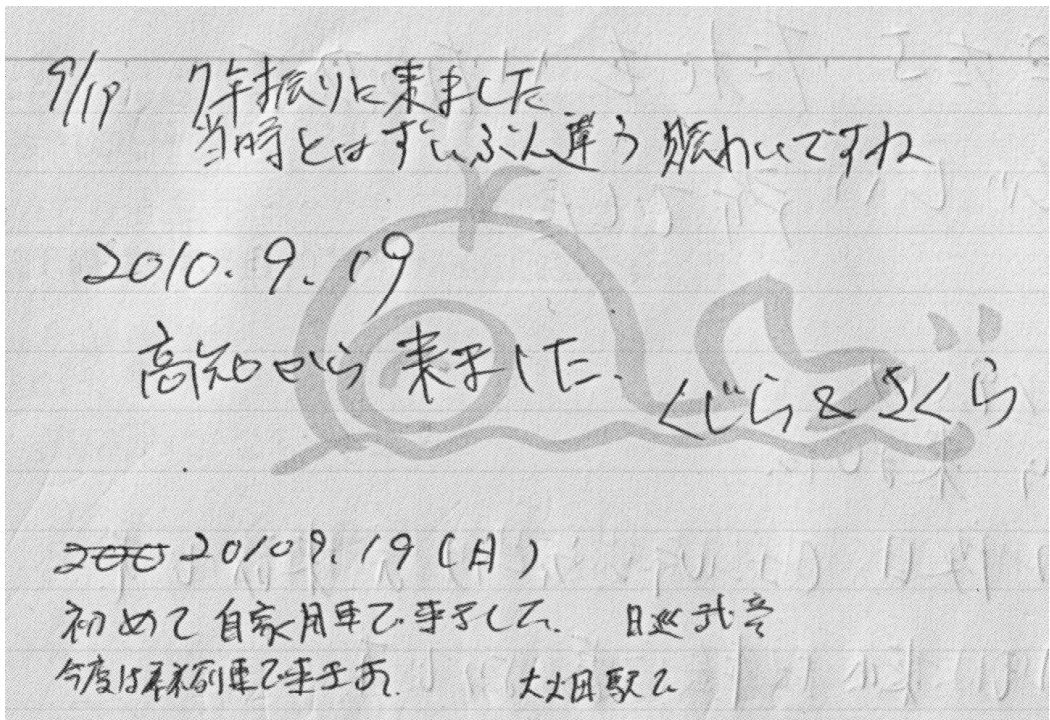 9/19 7年振りに来ました
当時とはずいぶん違う賑わいですね
2010.9.19
高知から来ました.
くじら&さくら
20109.19(日)
初めて自家用車で来ました.
今度は列車で来ます.
駅で